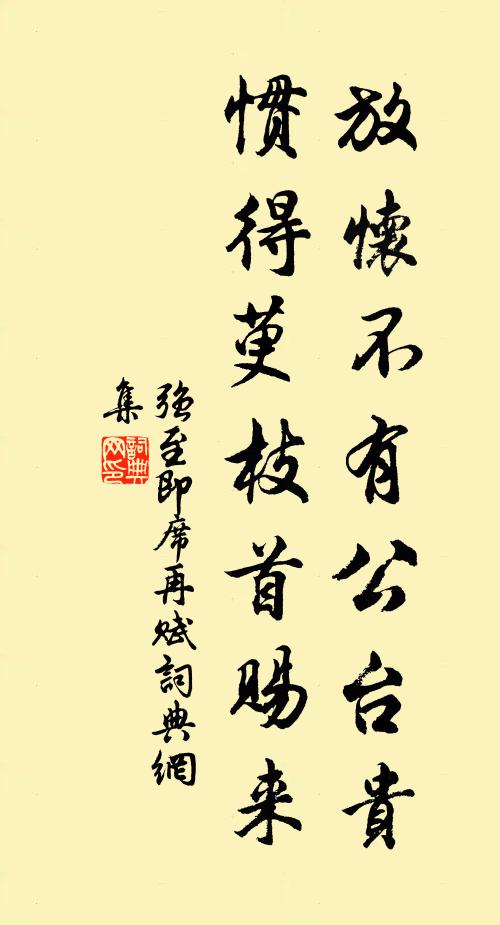 放懷不有公台貴
慣得萸枝首賜来
强至即席再赋詞典網
集
詞典网印